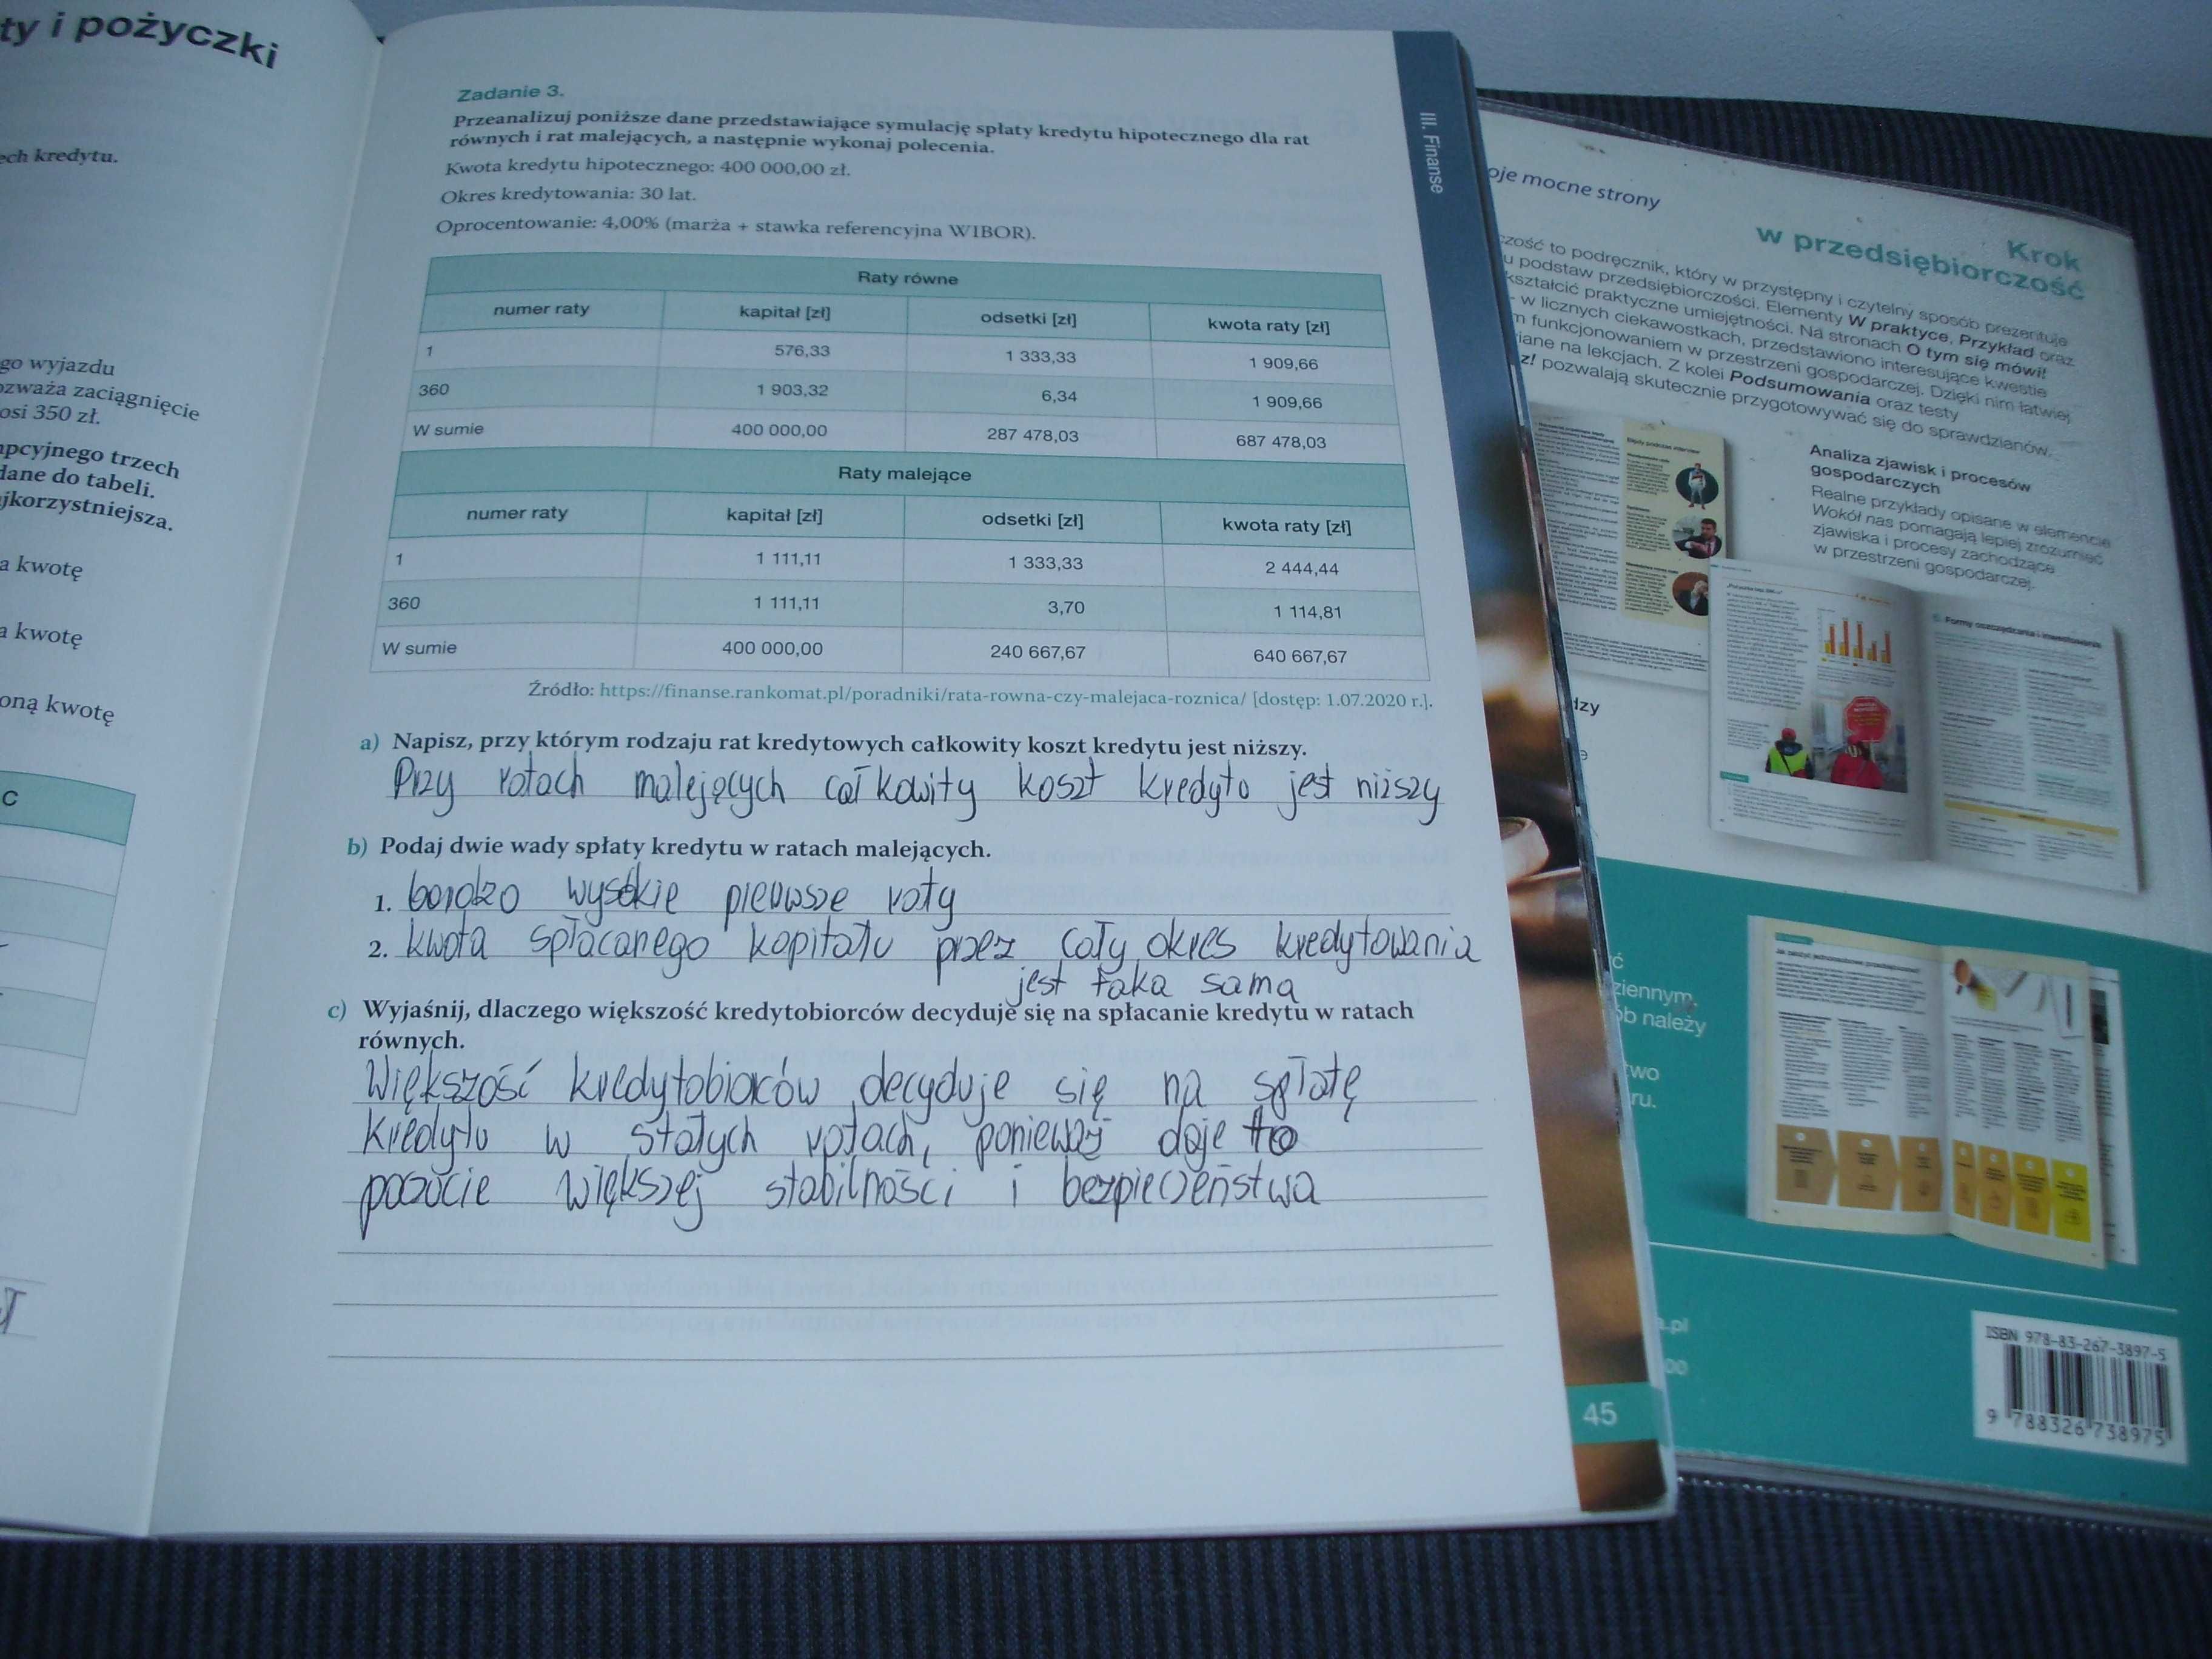 ty i pożyczki
ech kredytu.
go wyjazdu
ozważa zaciągnięcie
osi 350 zł.
pcyjnego trzech
dane do tabeli.
jkorzystniejsza.
a kwotę
a kwotę
oną kwotę
C
Zadanie 3.
Przeanalizuj poniższe dane przedstawiające symulację spłaty kredytu hipotecznego dla rat
równych i rat malejących, a następnie wykonaj polecenia.
Kwota kredytu hipotecznego: 400 000,00 zł.
Okres kredytowania: 30 lat.
Oprocentowanie: 4,00% (marża + stawka referencyjna WIBOR).
Raty równe
numer raty kapitał [zł] odsetki [zł] kwota raty [zł]
1 576,33 1 333,33 1 909,66
360 1 903,32 6,34 1 909,66
W sumie 400 000,00 287 478,03 687 478,03
Raty malejące
numer raty kapitał [zł] odsetki [zł] kwota raty [zł]
1 1 111,11 1 333,33 2 444,44
360 1 111,11 3,70 1 114,81
W sumie 400 000,00 240 667,67 640 667,67
Źródło: https://finanse.rankomat.pl/poradniki/rata-rowna-czy-malejaca-roznica/ [dostęp: 1.07.2020 r.].
a) Napisz, przy którym rodzaju rat kredytowych całkowity koszt kredytu jest niższy.
Przy ratach malejących całkowity koszt kredytu jest niższy
b) Podaj dwie wady spłaty kredytu w ratach malejących.
1. bardzo wysokie pierwsze raty
2. kwota spłacanego kapitału przez cały okres kredytowania
jest taka sama
c) Wyjaśnij, dlaczego większość kredytobiorców decyduje się na spłacanie kredytu w ratach
równych.
Większość kredytobiorców decyduje się na spłatę
kredytu w stałych ratach, ponieważ daje to
poczucie większej stabilności i bezpieczeństwa
III. Finanse
45
oje mocne strony
Krok
w przedsiębiorczość
zość to podręcznik, który w przystępny i czytelny sposób prezentuje
u podstaw przedsiębiorczości. Elementy W praktyce, Przykład oraz
kształcić praktyczne umiejętności. Na stronach O tym się mówi!
- w licznych ciekawostkach, przedstawiono interesujące kwestie
m funkcjonowaniem w przestrzeni gospodarczej. Dzięki nim łatwiej
iane na lekcjach. Z kolei Podsumowania oraz testy
z! pozwalają skutecznie przygotowywać się do sprawdzianów.
Analiza zjawisk i procesów
gospodarczych
Realne przykłady opisane w elemencie
Wokół nas pomagają lepiej zrozumieć
zjawiska i procesy zachodzące
w przestrzeni gospodarczej.
Formy oszczędzania i inwestowania
dzy
ć
ziennym,
ób należy
two
ru.
.pl
00
ISBN 978-83-267-3897-5
9 788326 738975